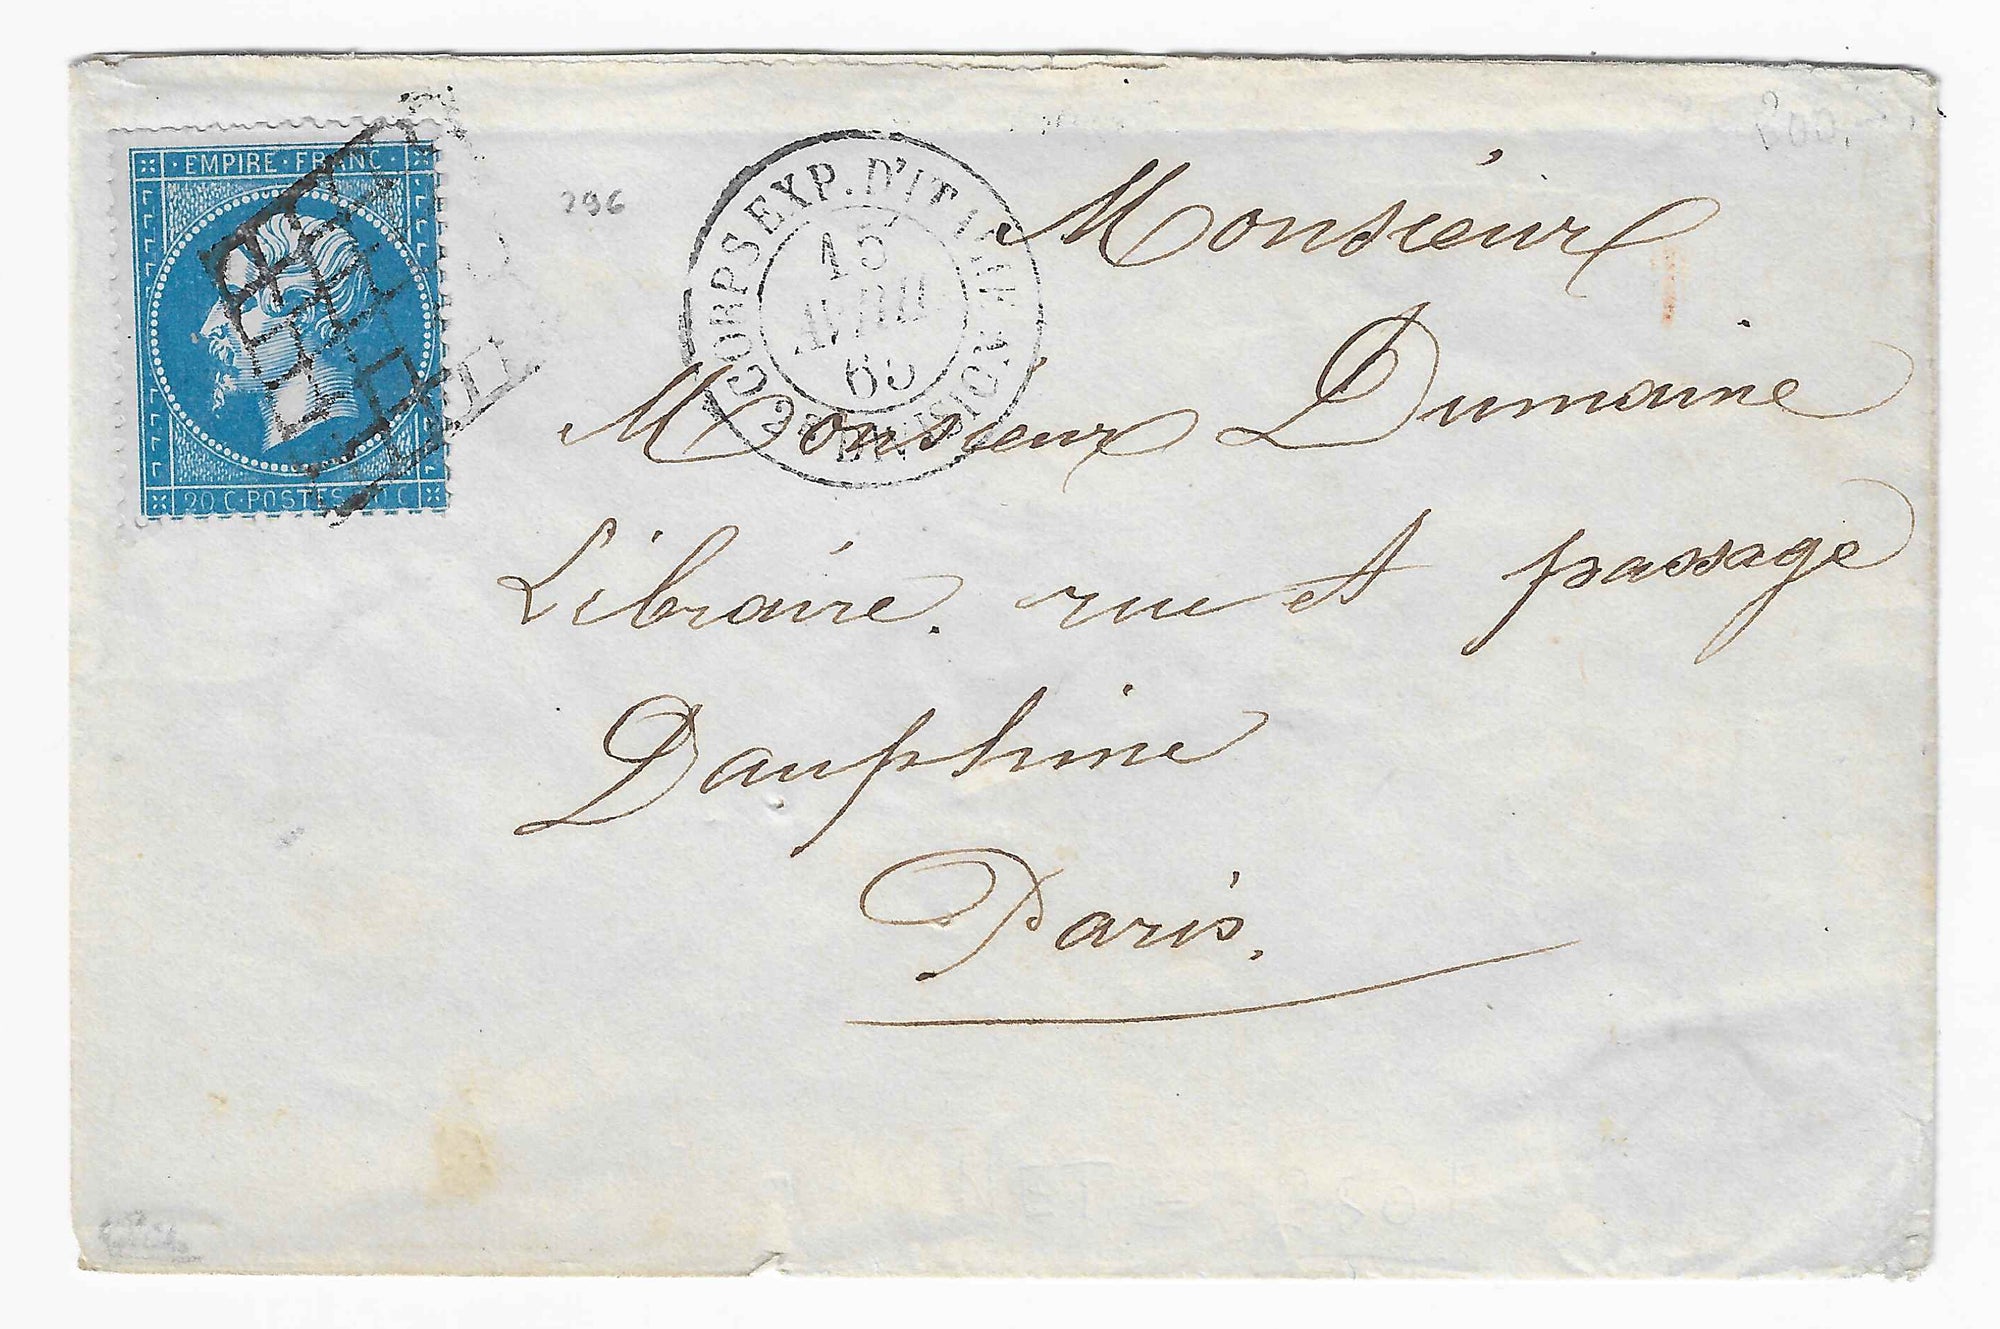 EMPIRE · FRANC ·
20 C · POSTES · 20 C
296
CORPS EXP. D'ITALIE
15
AVRIL
65
2E DIVISION
Monsieur
Monsieur Dumaine
Libraire. rue et passage
Dauphine
Paris.